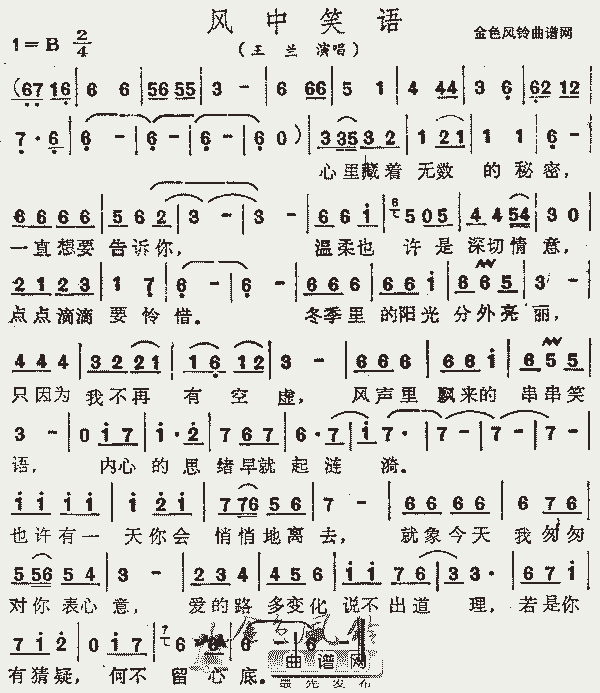 风中笑语
1=B 2/4
(王 兰 演唱)
金色风铃曲谱网
(67 16 | 6 6 | 56 55 | 3 - | 6 66 | 5 1 | 4 44 | 3 6 | 62 12 |
7· 6 | 6 - | 6 - | 6 - | 6 0) | 3 35 3 2 | 1 21 | 1 1 | 6 - |
心里藏着 无数 的秘密,
6 6 6 6 | 5 6 2 | 3 - | 3 - | 6 6 i | 5 05 | 4 4 54 | 3 0 |
一直想要 告诉你, 温柔也 许是深切情意,
2 1 2 3 | 1 7 | 6 - | 6 - | 6 6 6 | 6 6 i | 6 6 5 | 3 - |
点点滴滴 要怜惜。 冬季里 的阳光 分外亮 丽,
4 4 4 | 3 2 21 | 1 6 12 | 3 - | 6 6 6 | 6 6 i | 6 5 5 |
只因为 我不再 有 空 虚, 风声里 飘来的 串串笑
3 - | 0 i 7 | i· 2 | 7 6 7 | 6· 7 | i 7· | 7 - | 7 - | 7 - |
语, 内心 的 思 绪早就 起 涟 漪。
i i i i | i 2 i | 7 76 5 6 | 7 - | 6 6 6 6 | 6 7 6 |
也许有一 天你会 悄悄地离 去, 就象今天 我匆匆
5 56 5 4 | 3 - | 2 3 4 | 4 5 6 | i i 7 6 | 3 3· | 6 7 i |
对你 表心 意, 爱的路 多变化 说不出道 理, 若是你
7 i 2 | 0 i 7 | 6 6 | 6 - | 6 - |
有猜疑, 何不 留 心 底。
曲谱网
最先发布